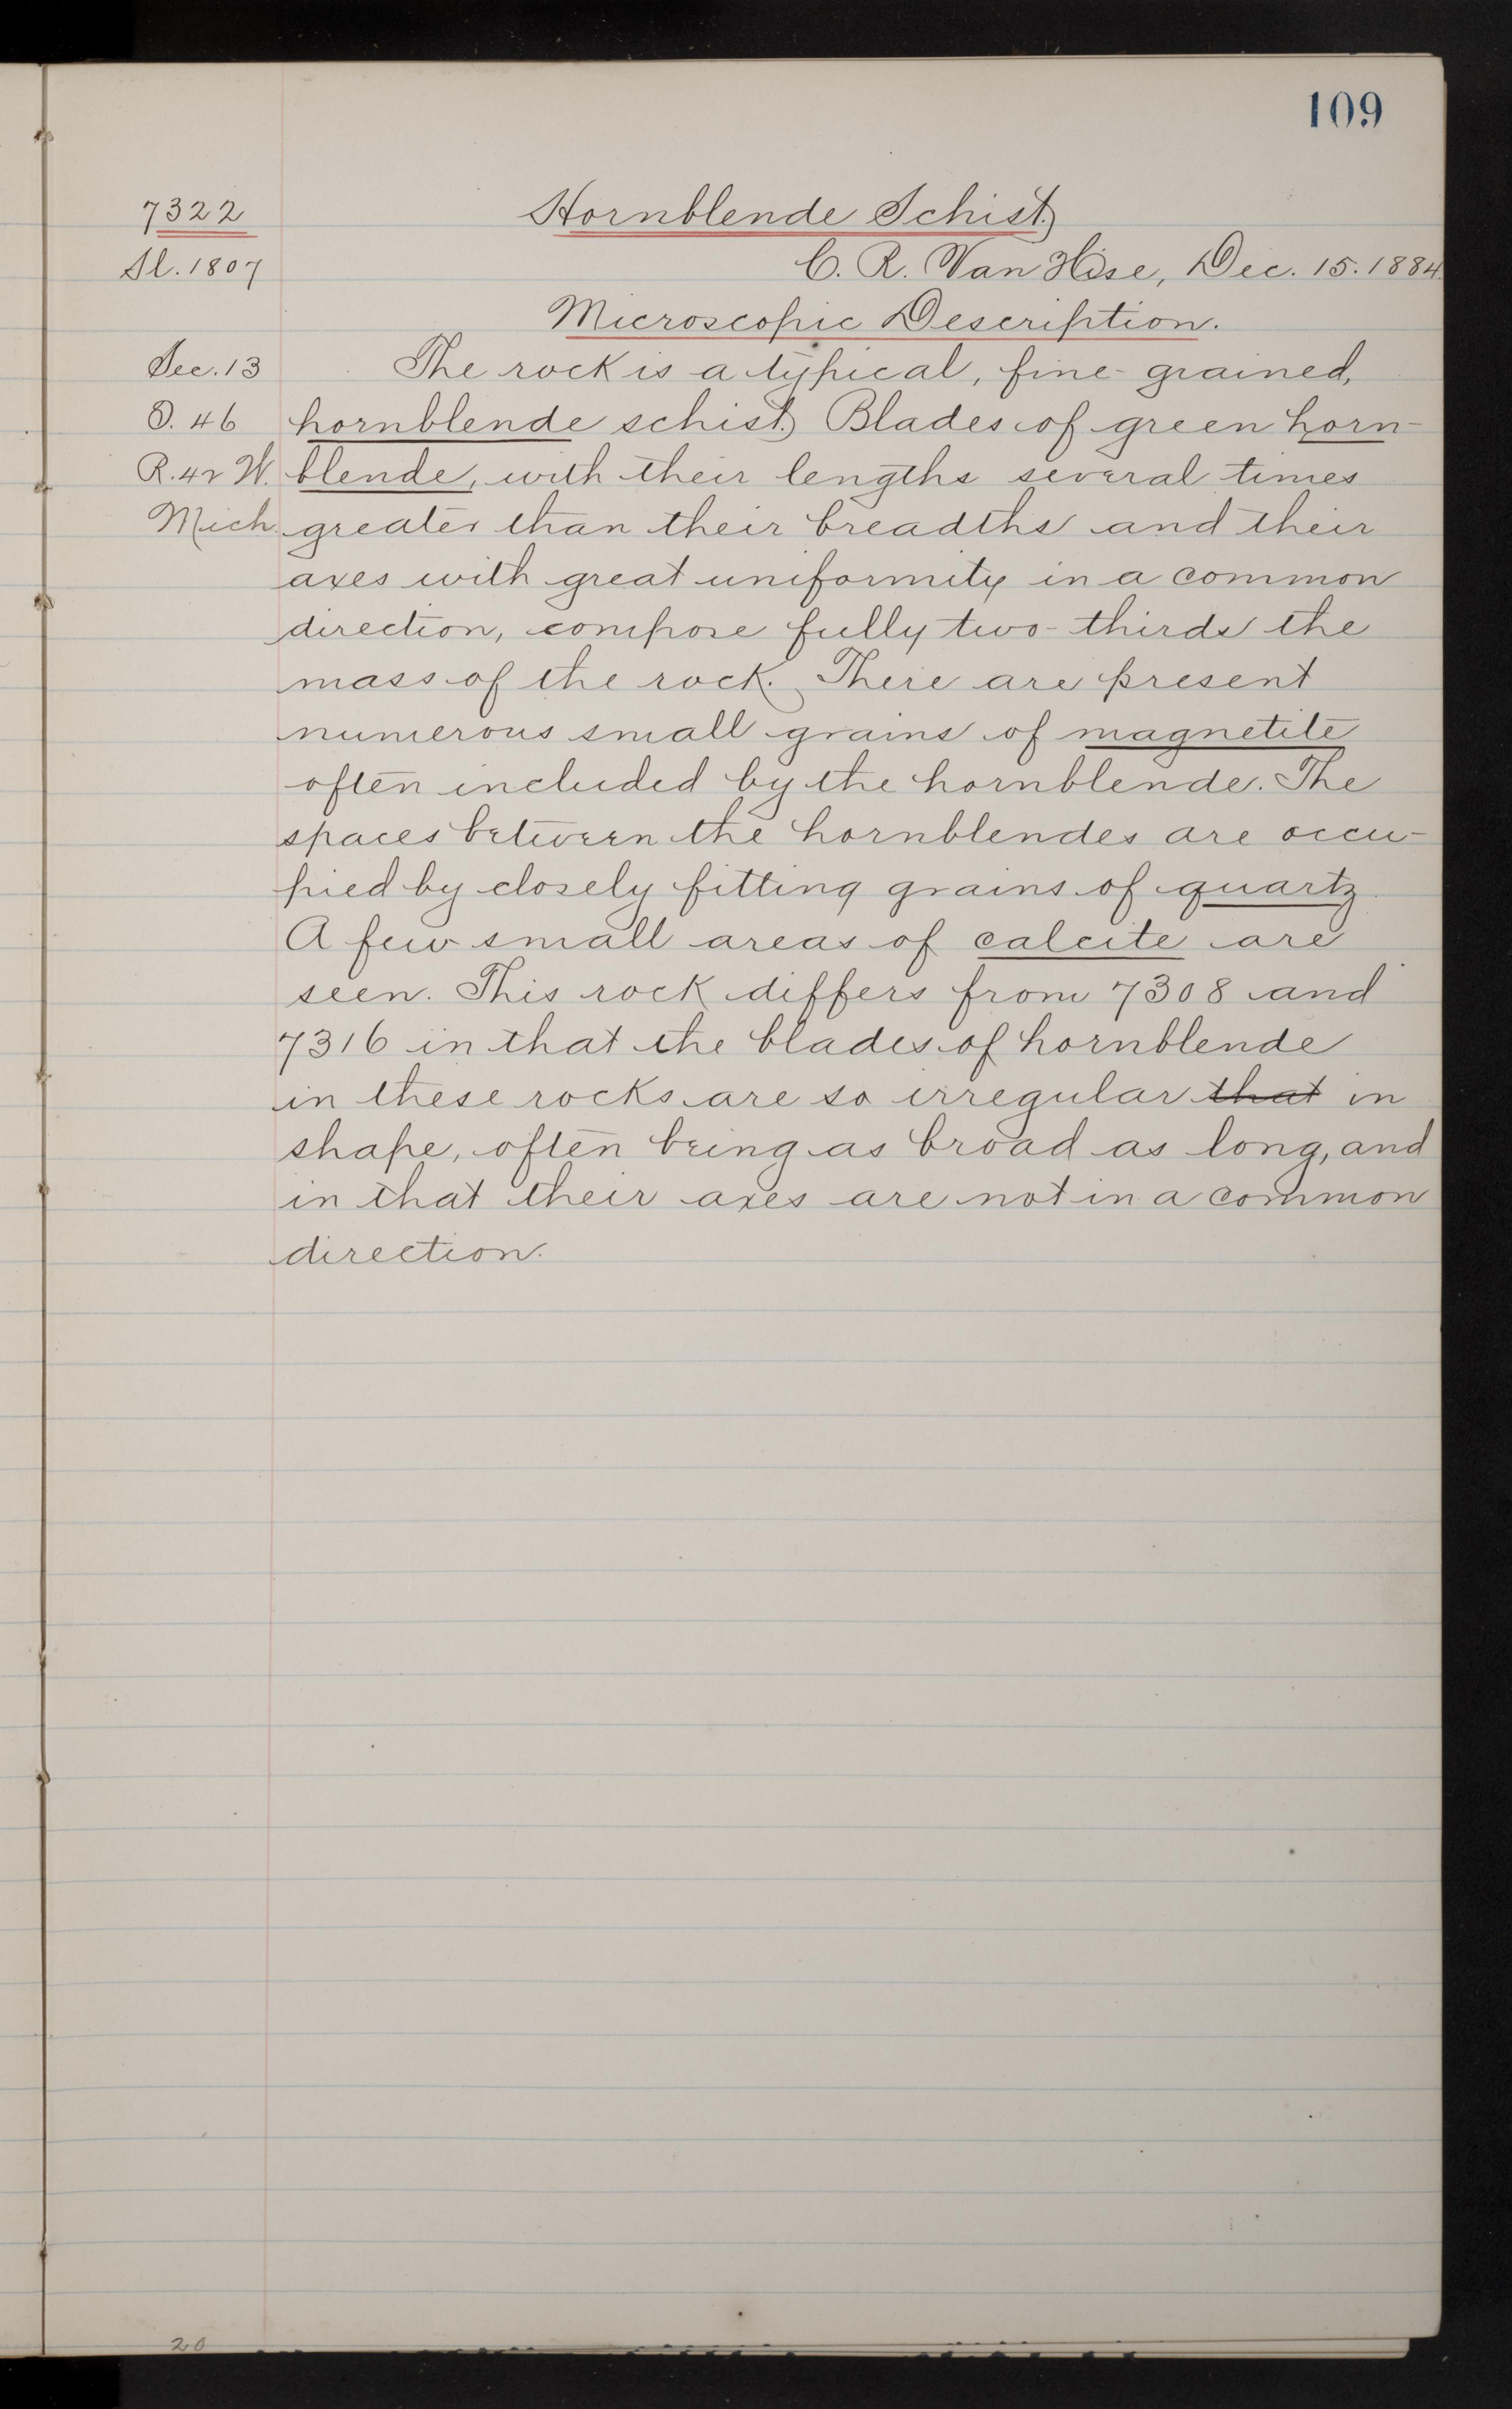 109
7322 Hornblende Schist.
Sl. 1807 C. R. Van Hise, Dec. 15. 1884.
Microscopic Description.
Sec. 13 The rock is a typical, fine-grained,
T. 46 hornblende schist. Blades of green horn-
R. 42 W. blende, with their lengths several times
Mich. greater than their breadths and their
axes with great uniformity in a common
direction, compose fully two-thirds the
mass of the rock. There are present
numerous small grains of magnetite
often included by the hornblende. The
spaces between the hornblendes are occu-
pied by closely fitting grains of quartz.
A few small areas of calcite are
seen. This rock differs from 7308 and
7316 in that the blades of hornblende
in these rocks are so irregular that in
shape, often being as broad as long, and
in that their axes are not in a common
direction.
20